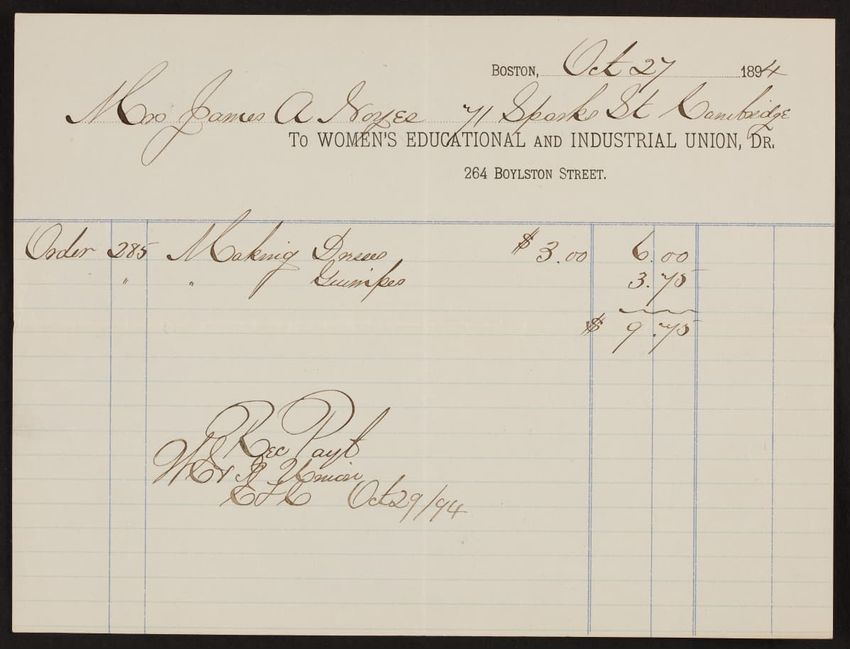 BOSTON, Oct 27 1894
Mrs James A Noyes 71 Sparks St Cambridge
To WOMEN'S EDUCATIONAL AND INDUSTRIAL UNION, DR.
264 BOYLSTON STREET.
Order 285 Making Dresses $3.00 6.00
" " Guimpes 3.75
$ 9.75
Rec Payt
W E & I Union
Oct 29/94